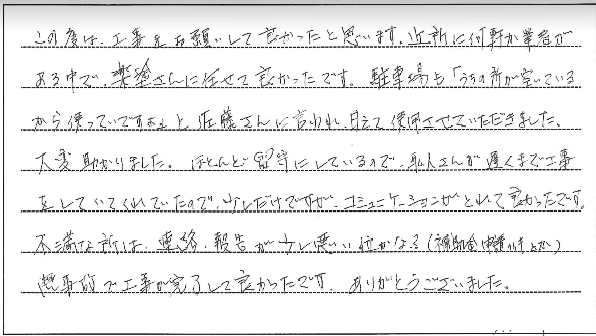 この度は、工事をお願いして良かったと思います。近所に何軒か業者が
ある中で、楽塗さんに任せて良かったです。駐車場も「うちの所が空いている
から使っていいですよ」と佐藤さんに言われ、甘えて使用させていただきました。
大変助かりました。ほとんど留守にしているので、職人さんが遅くまで工事
をしていてくれていたので、少しだけですが、コミュニケーションがとれて良かったです。
不満な所は、連絡、報告が少し悪い位かな?(補助金申請の
無事故で工事が完了して良かったです。ありがとうございました。